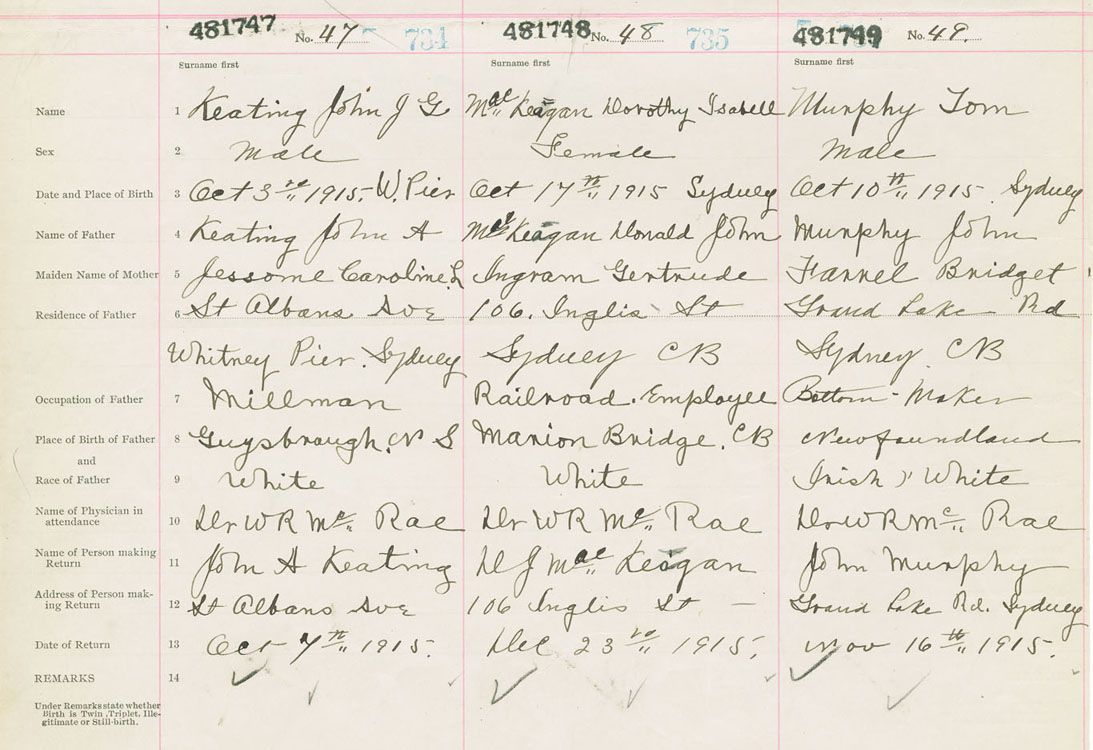 481747 No. 47 734 481748 No. 48 735 481749 No. 49.
Surname first Surname first Surname first
Name 1 Keating John J G Mac Keagan Dorothy Isabell Murphy Tom
Sex 2 Male Female Male
Date and Place of Birth 3 Oct 3rd 1915. W. Pier Oct 17th 1915 Sydney Oct 10th 1915. Sydney
Name of Father 4 Keating John A Mac Keagan Donald John Murphy John
Maiden Name of Mother 5 Jessome Caroline L Ingram Gertrude Farrel Bridget
Residence of Father 6 St Albans Ave 106. Inglis St Grand Lake Rd
Whitney Pier. Sydney Sydney CB Sydney CB
Occupation of Father 7 Millman Railroad. Employee Bottom-Maker
Place of Birth of Father 8 Guysbraugh. N S Marion Bridge. CB Newfoundland
and
Race of Father 9 White White Irish White
Name of Physician in
attendance 10 Dr W R Mc Rae Dr W R Mc Rae Dr W R Mc Rae
Name of Person making
Return 11 John A Keating D J Mac Keagan John Murphy
Address of Person mak-
ing Return 12 St Albans Ave 106 Inglis St — Grand Lake Rd. Sydney
Date of Return 13 Oct 7th 1915. Dec 23rd 1915. Nov 16th 1915.
REMARKS 14
Under Remarks state whether
Birth is Twin, Triplet, Ille-
gitimate or Still-birth.